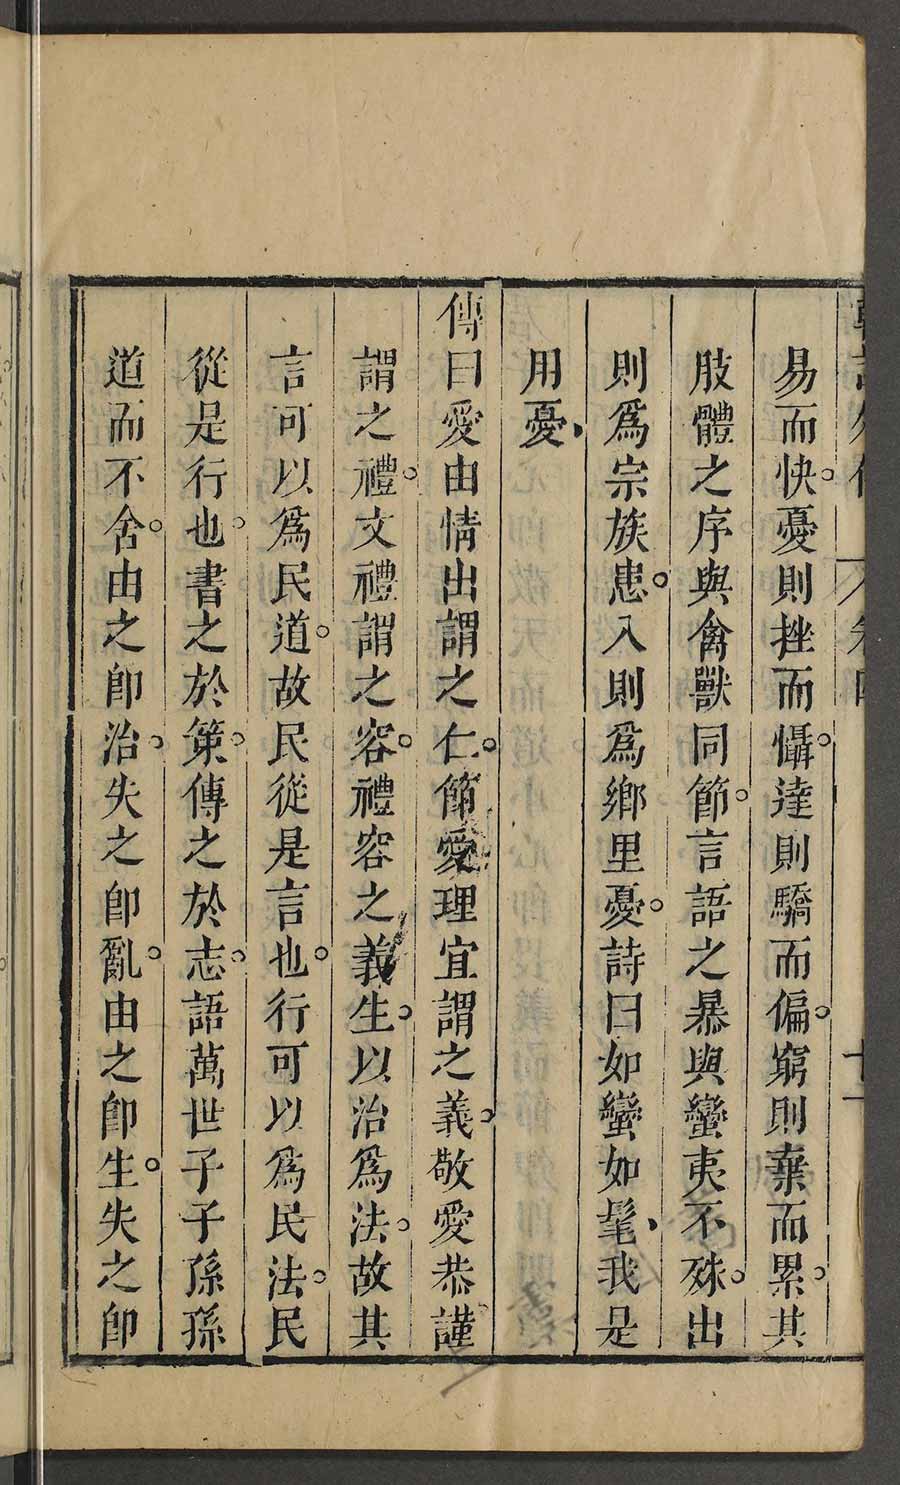 韓詩外傳 卷四 十一
易而快。憂則挫而懾。達則驕而偏。窮則棄而累。其
肢體之序與禽獸同節。言語之暴與蠻夷不殊。出
則爲宗族患。入則爲鄉里憂。詩曰如蠻如髦、我是
用憂、
傳曰愛由情出謂之仁。節愛理宜謂之義。敬愛恭謹
謂之禮。文禮謂之容。禮容之義生。以治爲法。故其
言可以爲民道。故民從是言也。行可以爲民法。民
從是行也。書之於策。傳之於志。語萬世子子孫孫
道而不舍。由之卽治。失之卽亂。由之卽生。失之卽